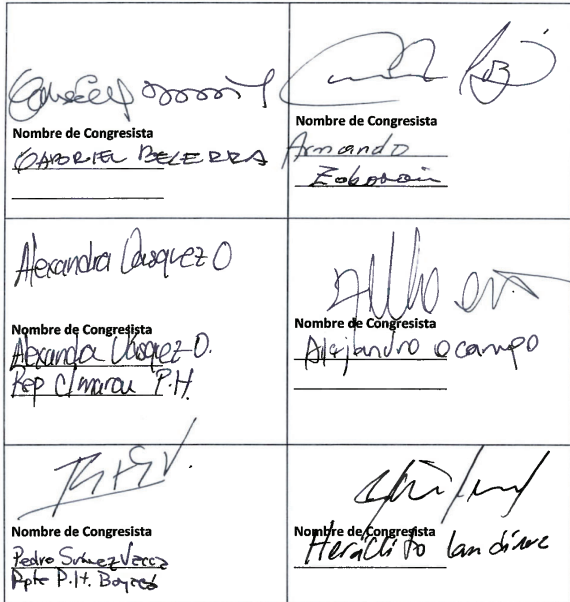 Nombre de Congresista
GABRIEL BECERRA
Nombre de Congresista
Armando
Zabarain
Alexandra Vásquez O
Nombre de Congresista
Alexandra Vásquez O.
Rep Cámara P.H.
Nombre de Congresista
Alejandro Ocampo
Nombre de Congresista
Pedro Suárez Vacca
Rpte P.H. Boyacá
Nombre de Congresista
Heráclito landinez